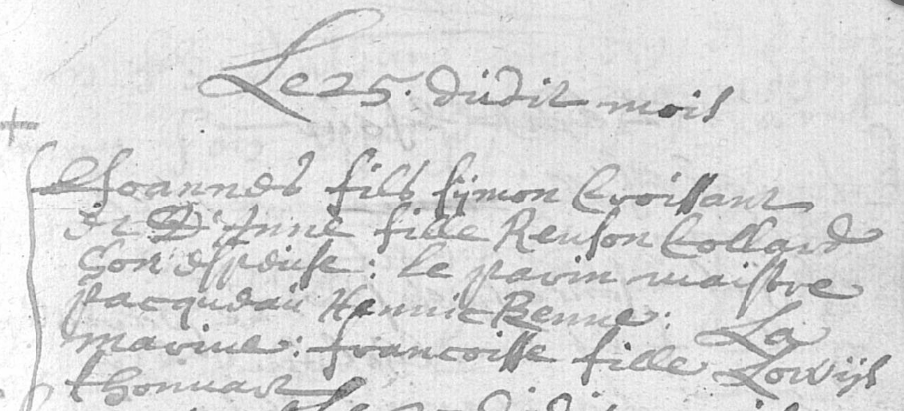 Le 25. dudit mois
Joannes fils symon Croissant
et D'Anne fille Renson Collard
son espeuse: le parin maistre
Jacqueau Hennic Benne: La
marine: francoisse fille Lowijs
thonnart